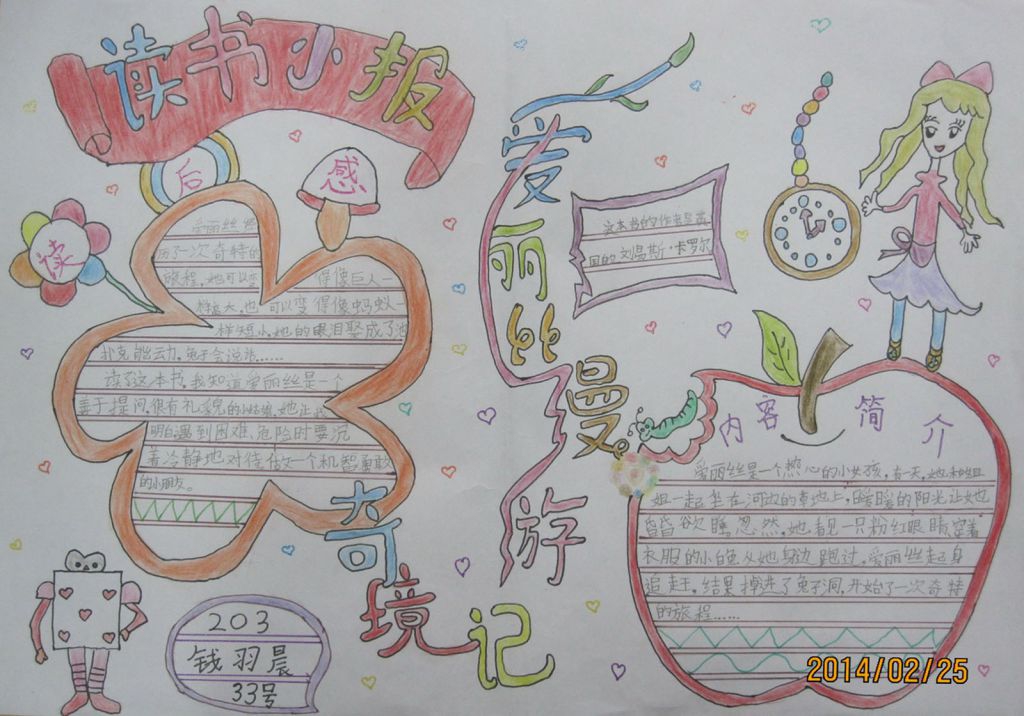 读书小报
读后感
爱丽丝经
历了一次奇特的
旅程，她可以变得像巨人一
样高大，也可以变得像蚂蚁一
样短小，她的眼泪聚成了池
扑克能动，兔子会说话……
读了这本书，我知道爱丽丝是一个
善于提问，很有礼貌的小姑娘，她让我
明白遇到困难、危险时要沉
着冷静地对待做一个机智勇敢
的小朋友。
203
钱羽晨
33号
爱丽丝漫游
奇境记
这本书的作者是英
国的刘易斯·卡罗尔
内容简介
爱丽丝是一个热心的小女孩，有一天，她和姐
姐一起坐在河边的草地上，暖暖的阳光让她
昏昏欲睡忽然，她看见一只粉红眼睛穿着
衣服的小兔从她身边跑过，爱丽丝起身
追赶，结果掉进了兔子洞，开始了一次奇特
的旅程……
2014/02/25